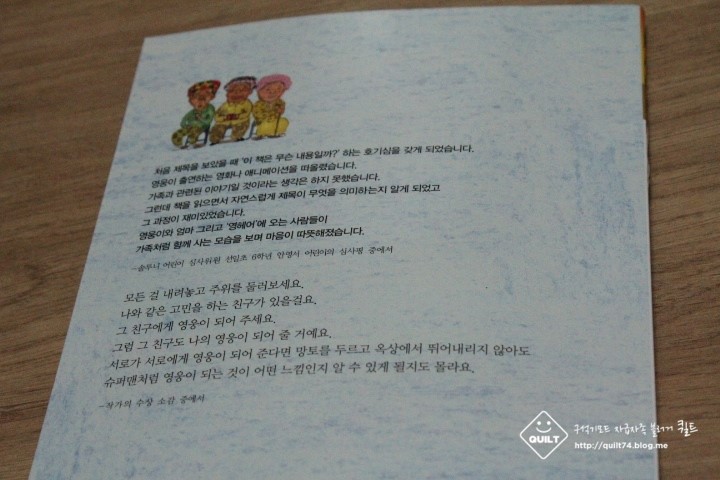 처음 제목을 보았을 때 '이 책은 무슨 내용일까?' 하는 호기심을 갖게 되었습니다.
영웅이 출연하는 영화나 애니메이션을 떠올렸습니다.
가족과 관련된 이야기일 것이라는 생각은 하지 못했습니다.
그런데 책을 읽으면서 자연스럽게 제목이 무엇을 의미하는지 알게 되었고
그 과정이 재미있었습니다.
영웅이와 엄마 그리고 '영헤어'에 오는 사람들이
가족처럼 함께 사는 모습을 보며 마음이 따뜻해졌습니다.
어린이 심사위원 6학년 어린이의 심사평 중에서
모든 걸 내려놓고 주위를 둘러보세요.
나와 같은 고민을 하는 친구가 있을걸요.
그 친구에게 영웅이 되어 주세요.
그럼 그 친구도 나의 영웅이 되어 줄 거예요.
서로가 서로에게 영웅이 되어 준다면 망토를 두르고 옥상에서 뛰어내리지 않아도
슈퍼맨처럼 영웅이 되는 것이 어떤 느낌인지 알 수 있게 될지도 몰라요.
–작가의 수상 소감 중에서
QUILT
자급자족 블로거 퀼트
http://quilt74.blog.me